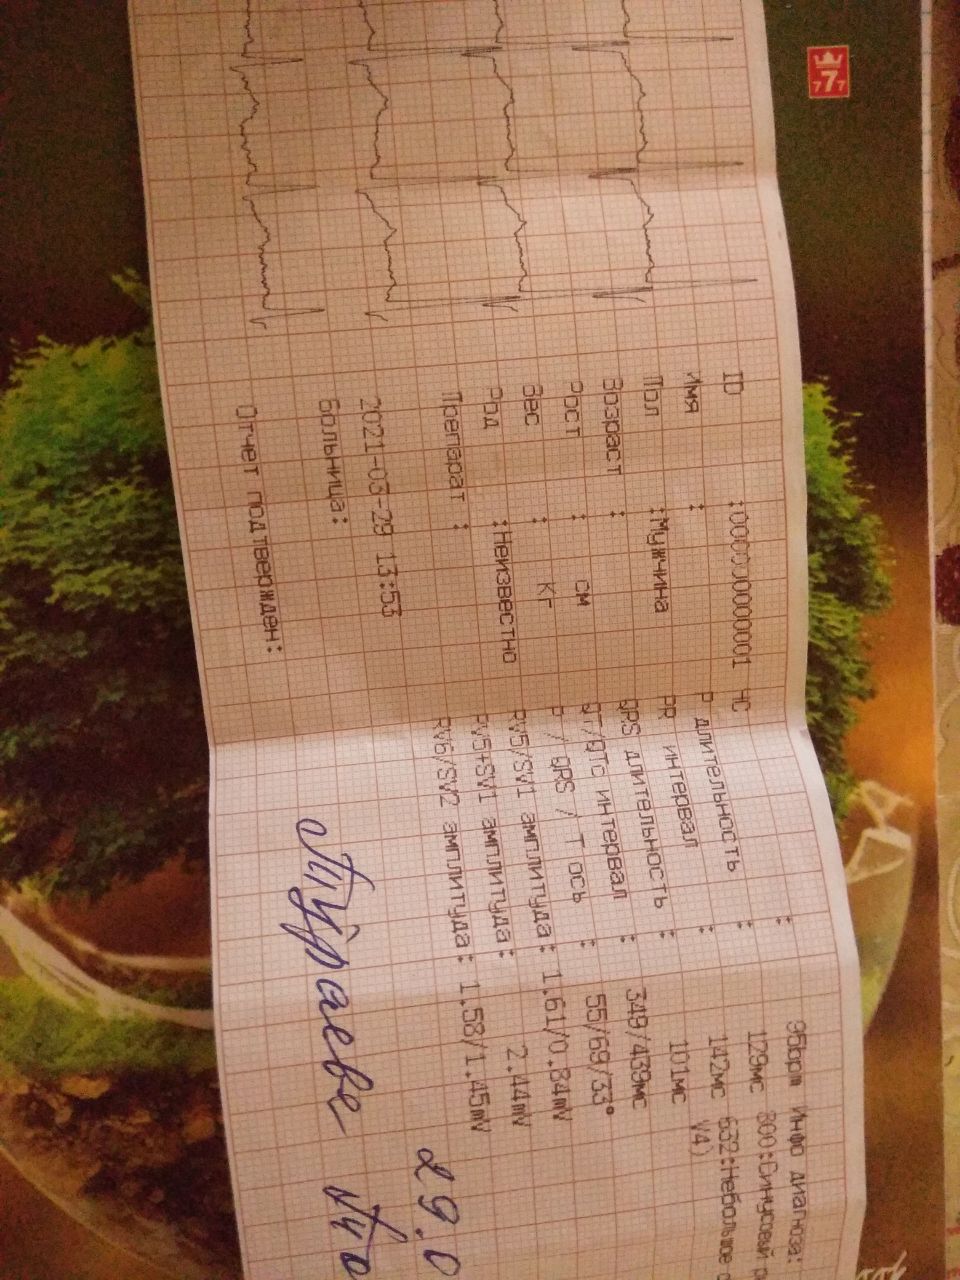 ID :000000000001
Имя :
Пол :Мужчина
Возраст :
Рост : см
Вес : кг
Род :Неизвестно
Препарат :
2021-03-29 13:53
Больница:
Отчет подтвержден:
ЧС : 95bpm
P длительность : 129мс
PR интервал : 142мс
QRS длительность : 101мс
QT/QTc интервал : 349/439мс
P / QRS / T ось : 55/69/33°
RV5/SV1 амплитуда: 1.61/0.84mV
RV5+SV1 амплитуда: 2.44mV
RV6/SV2 амплитуда: 1.58/1.45mV
Инфо диагноза:
800:Синусовый
632:Небольшое
V4)
29.0
777